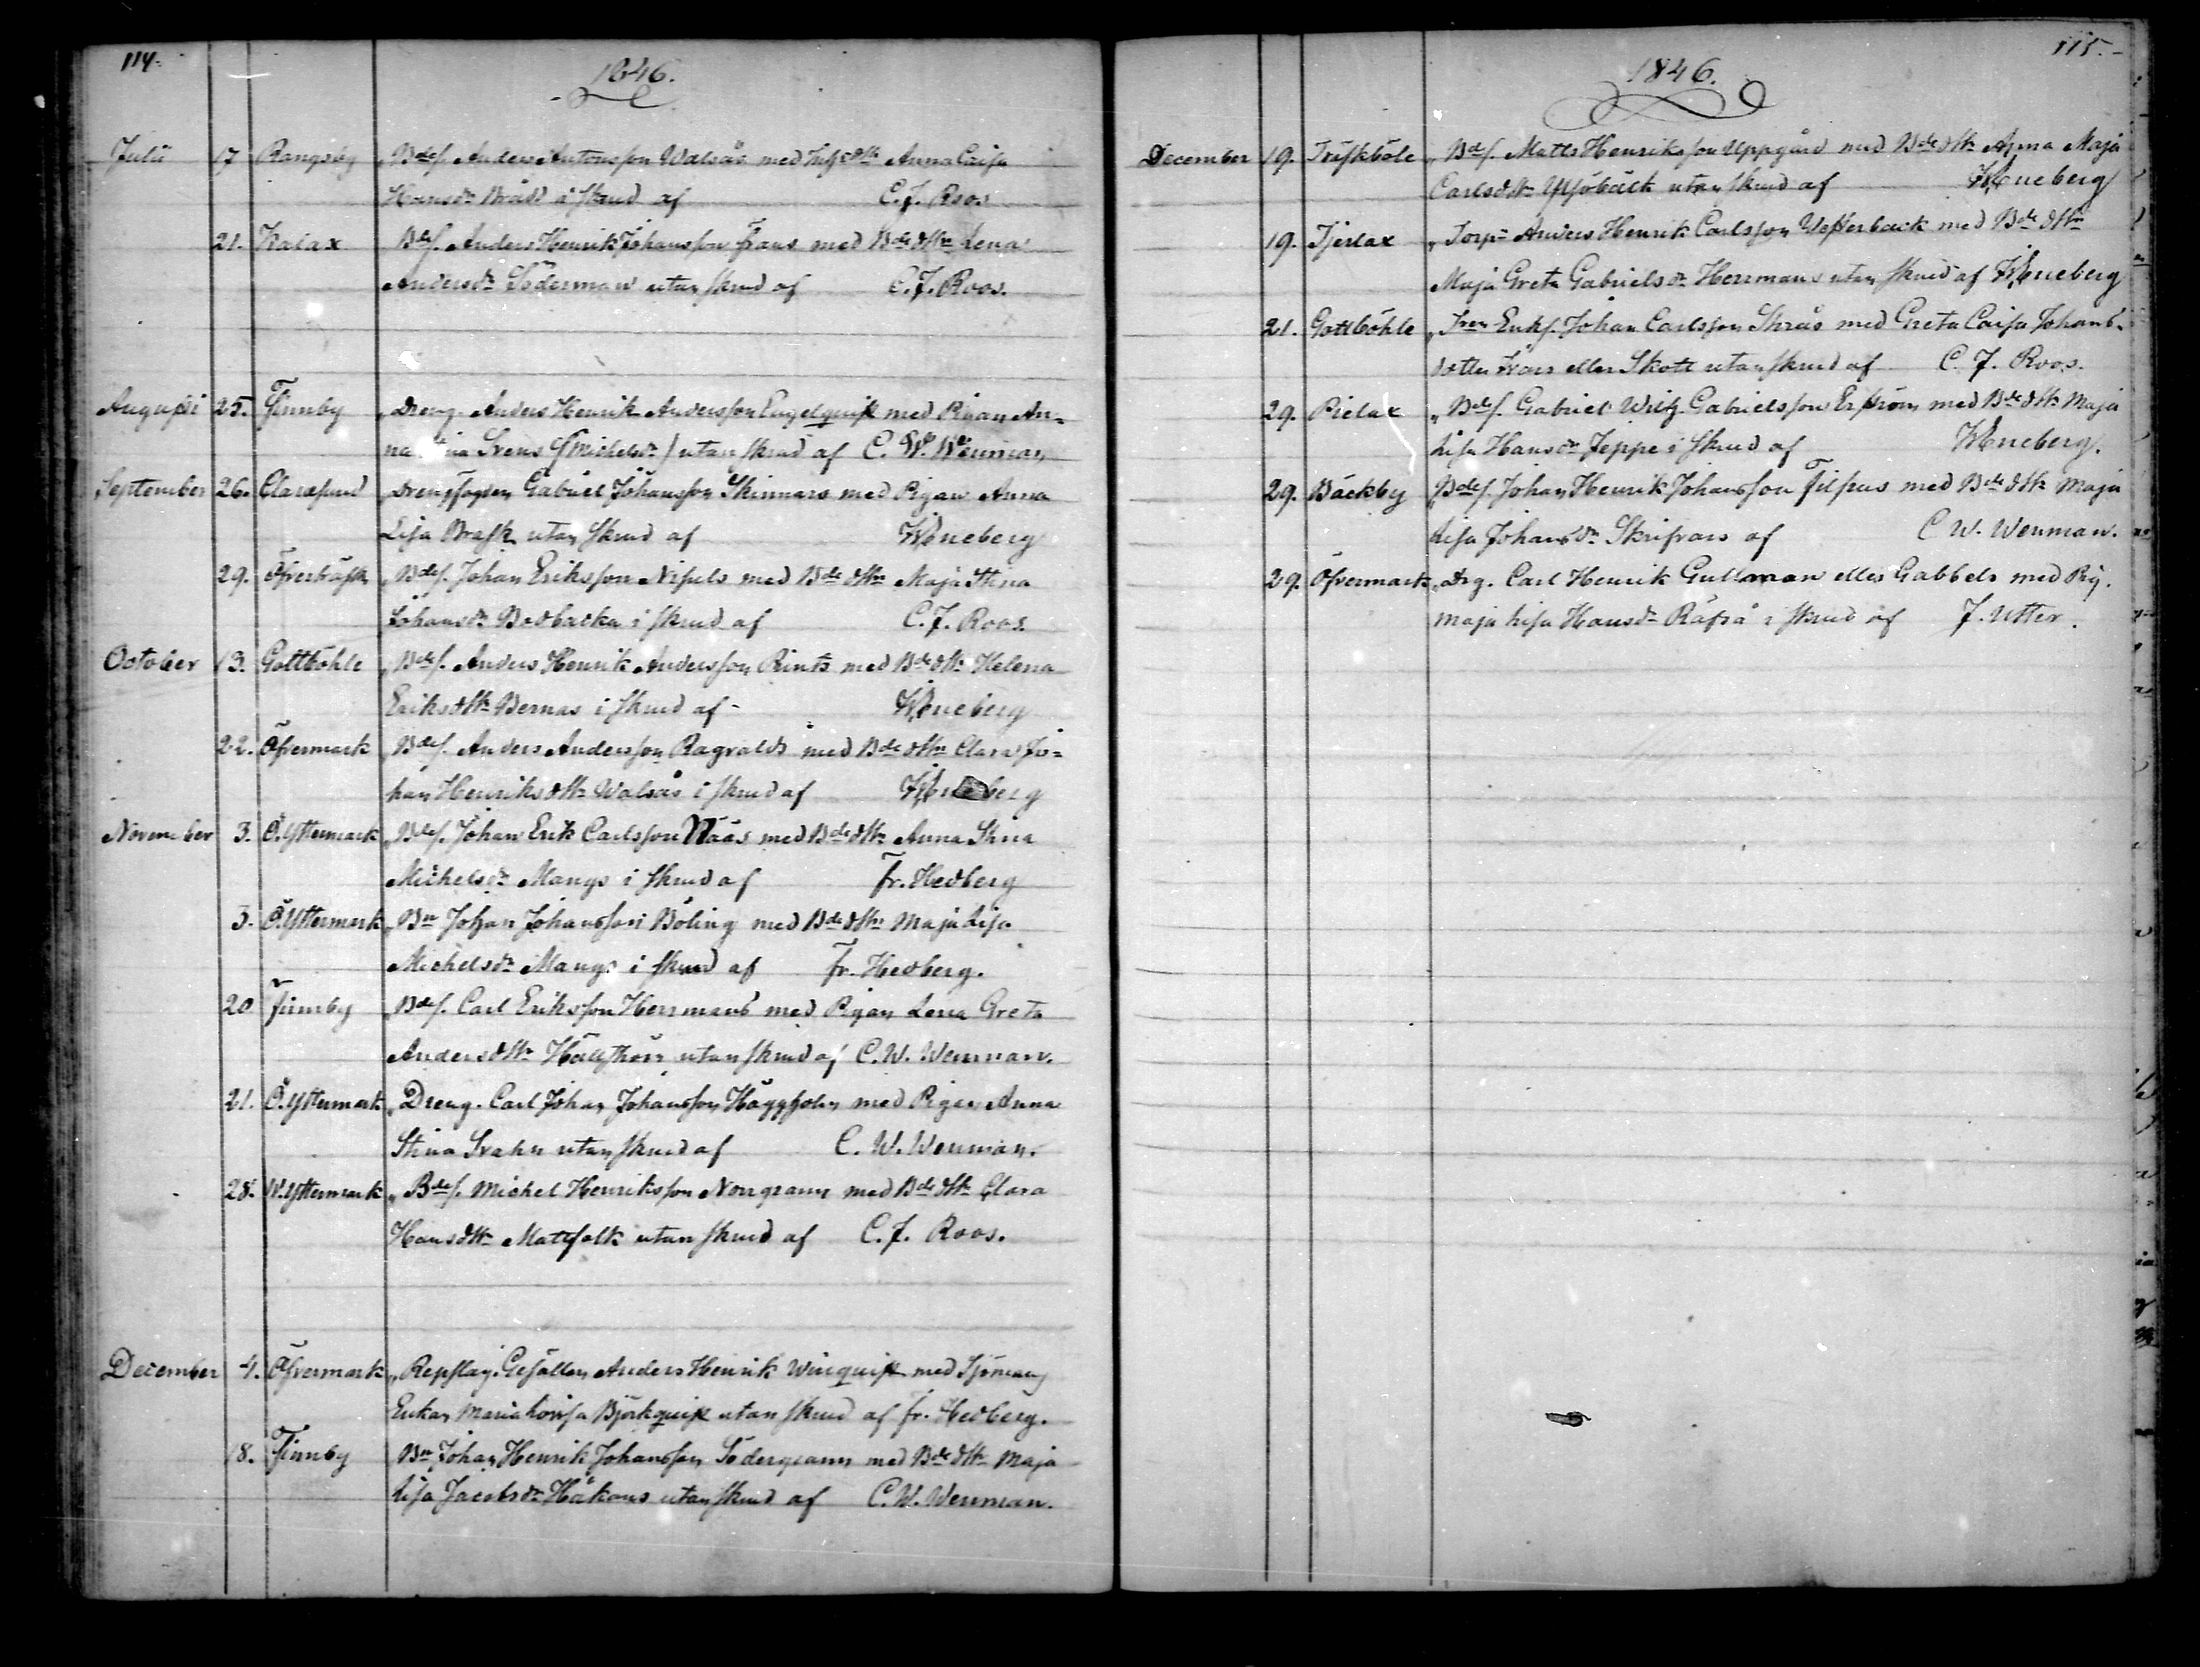 114.
1846.
Julii 17 Rangsby „Bdes. Anders Antonsson Walsås med Inhs dtt Anna Caisa
Hansdr Brådd i skrud af C. J. Roos.
21. Kalax Bdes. Anders Henrik Johansson Frans med Bde dttr Lena
Andersdr Söderman utan skrud af C. J. Roos.
Augusti 25. Finnby „Dreng. Anders Henrik Andersson Engelquist med Pigan An-
na Svens (Michelsdr) utan skrud af C. W. Wenman
September 26. Claresund Drengfogden Gabriel Johansson Skinnars med Pigan Anna
Lisa Brask utan skrud af Weneberg
29. Öfverträsk „Bdes. Johan Eriksson Nissels med Bde dttr Maja Stina
Johansdr Bredbacka i skrud af C. J. Roos.
October 13. Gottböhle „Bdes. Anders Henrik Andersson Rints med Bde dttr Helena
Eriksdttr Bernas i skrud af - Weneberg
22. Öfvermark „Bdes. Anders Andersson Ragvalds med Bde dttr Clara Jo-
han Henriksdttr Walsås i skrud af Weneberg
November 3. Ö. Yttermark „Bdes. Johan Erik Carlsson Nääs med Bde dttr Anna Stina
Michelsdr Mangs i skrud af Fr. Hedberg
3. Ö. Yttermark „Bn Johan Johansson Böling med Bde dttr Maja Lisa
Michelsdr Mangs i skrud af Fr. Hedberg.
20 Finnby „Bdes. Carl Eriksson Herrmans med Pigan Lena Greta
Andersdttr utan skrud af C. W. Wenman.
21. Ö. Yttermark „Dreng. Carl Johan Johansson Häggholm med Pigan Anna
Stina Svahn utan skrud af C. W. Wenman.
28. W. Yttermark „Bdes. Michel Henriksson Norrgrann med Bde dttr Clara
Hansdttr Mattfolk utan skrud af C. J. Roos.
December 4. Öfvermark „Repslag. Gesällen Anders Henrik Winquist med Sjöman
Enkan Maria Lovisa Björkquist utan skrud af Fr. Hedberg.
18. Finnby Bn Johan Henrik Johansson Södergrann med Bde dttr Maja
Lisa Jacobsdr Håkans utan skrud af C. W. Wenman.
115.
1846.
December 19. Träskböle „Bdes. Matts Henriksson Uppgård med Bde dttr Anna Maja
Carlsdttr utan skrud af Weneberg
19. Tjerlax „Torp. Anders Henrik Carlsson Westerback med Bde dttr
Maja Greta Gabrielsdr Herrmans utan skrud af Weneberg
21. Gottböhle „ Enkl. Johan Carlsson Skrås med Greta Caisa Johans-
dotter Ivars eller Skott utan skrud af C. J. Roos.
29. Pielax „Bdes. Gabriel Wilh. Gabrielsson Erström med Bde dttr Maja
Lisa Hansdr Jeppe i skrud af Weneberg.
29. Bäckby „Bdes. Johan Henrik Johansson Filpus med Bde dttr Maja
Lisa Johansdr Skrifvars af C W. Wenman.
29. Öfvermark „Drg. Carl Henrik Gullman eller Gabbels med Pig.
Maja Lisa Hansdr Räfså i skrud af J. Utter.